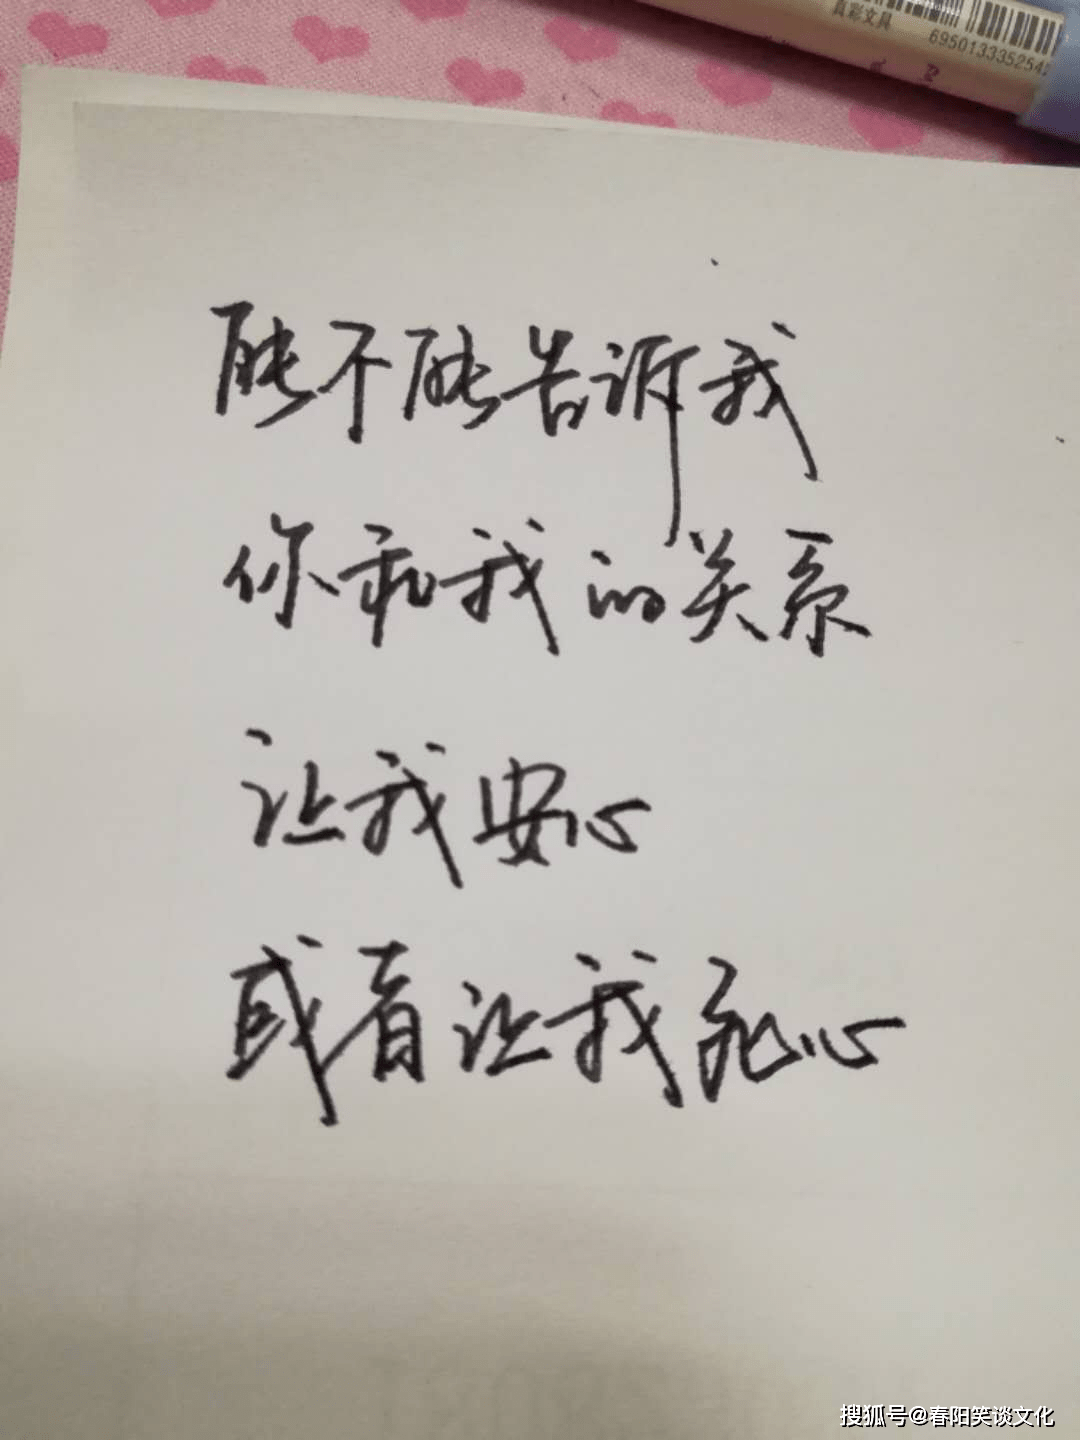 真彩文具
6950133352542
能不能告诉我
你和我的关系
让我安心
或者让我死心
搜狐号@春阳笑谈文化